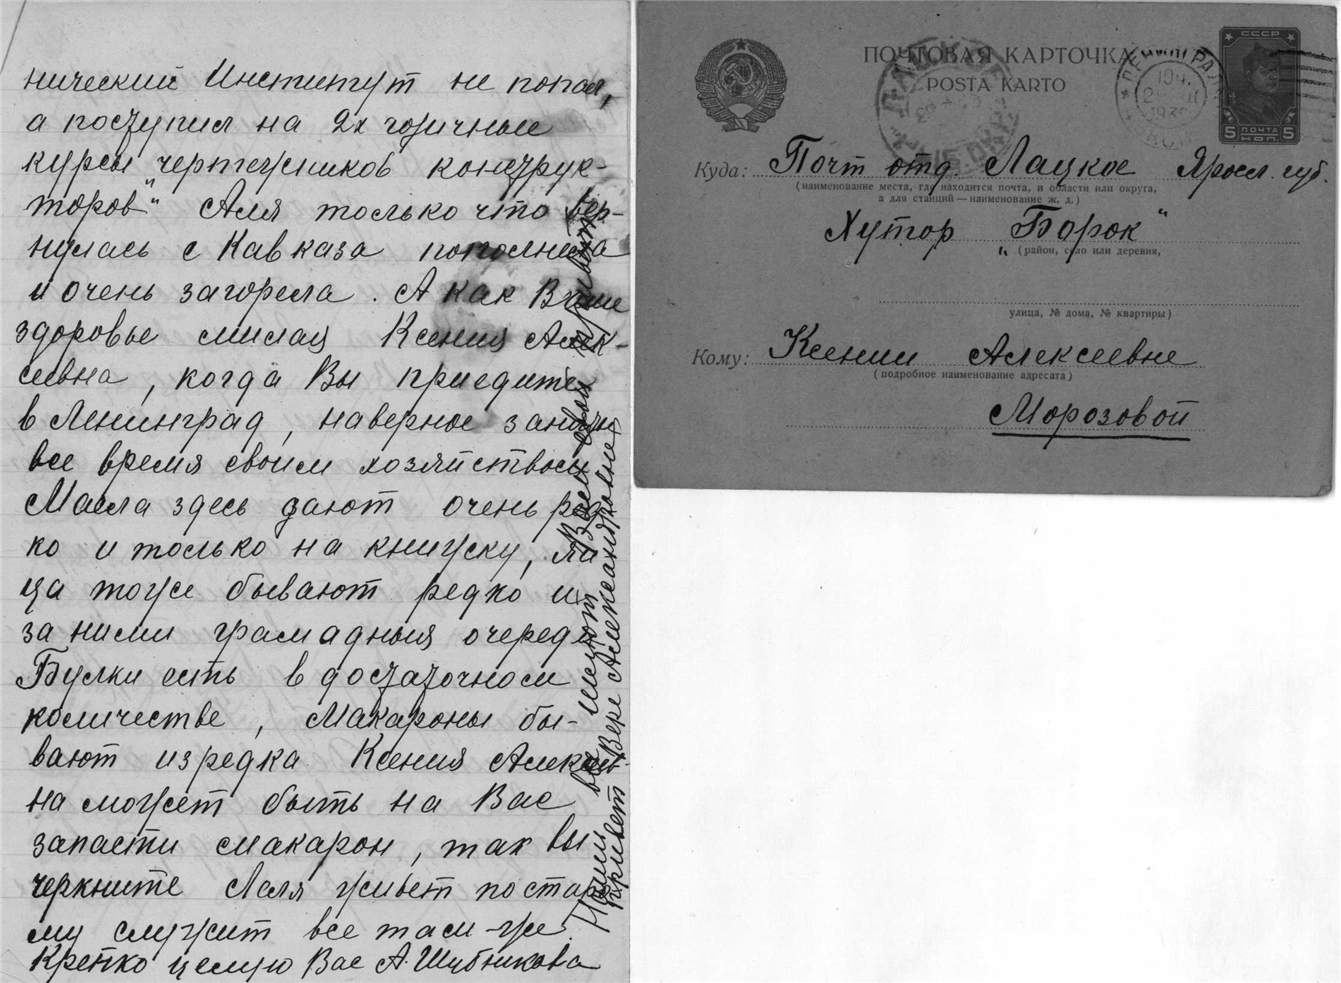 нический Институт не попал,
а поступил на 2х годичныи
курсы чертежников конструк-
торов" Аля только что вер-
нулась с Кавказа пополнела
и очень загорела. А как Ваше
здоровье милая Ксения Алек-
сеевна, когда Вы приедите
в Ленинград, наверное заняты
все время своим хозяйством
Масла здесь дают очень ред
ко и только на книжку, яи
ца тоже бывают редко и
за ними грамадныя очереди
Булки есть в достаточном
количестве, Макароны бы-
вают изредка Ксения Алексев-
на может быть на Вас
запасти макарон, так вы
черкните Ляля живет по старо
му служит все там-же.
Крепко целую Вас А. Шубникова
Наши все шлют Вам свой привет
привет Вере Александровне
ПОЧТОВАЯ КАРТОЧКА
POSTA KARTO
СССР
5 ПОЧТА 5
КОП.
ЛЕНИНГРАД
Куда: Почт отд Лацкое Яросл. губ.
(наименование места, где находится почта, и области или округа,
а для станций — наименование ж. д.)
Хутор „Борок"
(район, село или деревня,
улица, № дома, № квартиры)
Кому: Ксении Алексеевне
(подробное наименование адресата)
Морозовой